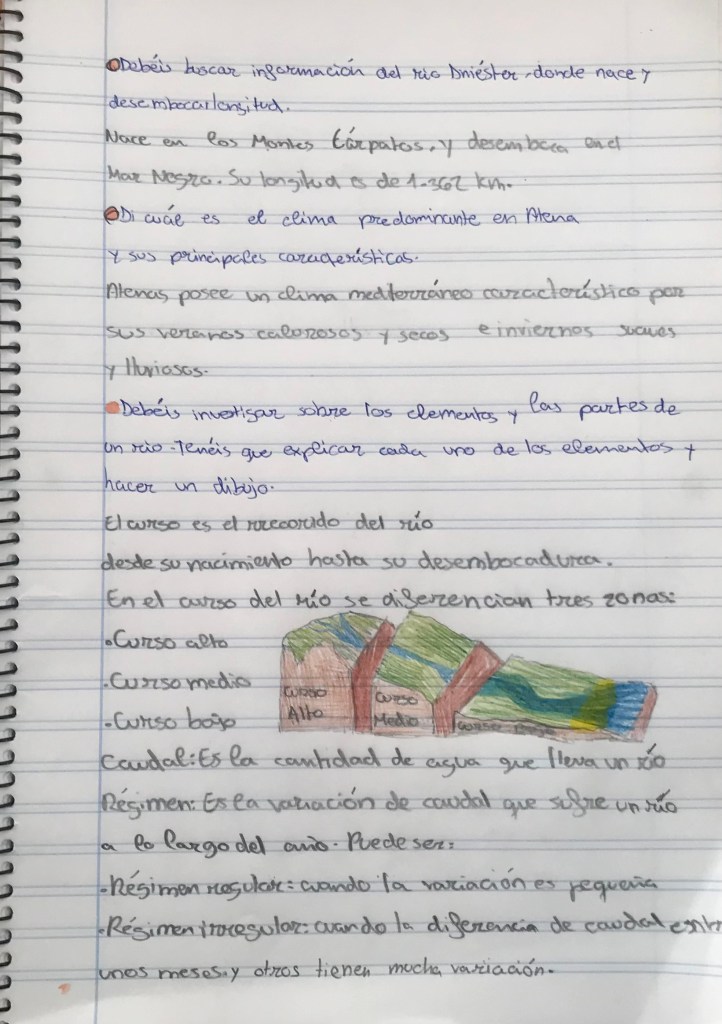 Debéis buscar información del río Dniéster, donde nace y
desembocar longitud.
Nace en los Montes Cárpatos, y desemboca en el
Mar Negro. Su longitud es de 1.362 km.
Di cuál es el clima predominante en Atena
y sus principales características.
Atenas posee un clima mediterráneo característico por
sus veranos calurosos y secos e inviernos suaves
y lluviosos.
Debéis investigar sobre los elementos y las partes de
un río. Tenéis que explicar cada uno de los elementos y
hacer un dibujo.
El curso es el recorrido del río
desde su nacimiento hasta su desembocadura.
En el curso del río se diferencian tres zonas:
•Curso alto
•Curso medio
•Curso bajo
Curso
Alto
Curso
Medio
Curso Bajo
Caudal: Es la cantidad de agua que lleva un río
Régimen: Es la variación de caudal que sufre un río
a lo largo del año. Puede ser:
•Régimen regular: cuando la variación es pequeña
•Régimen irregular: cuando la diferencia de caudal entr
unos meses y otros tienen mucha variación.